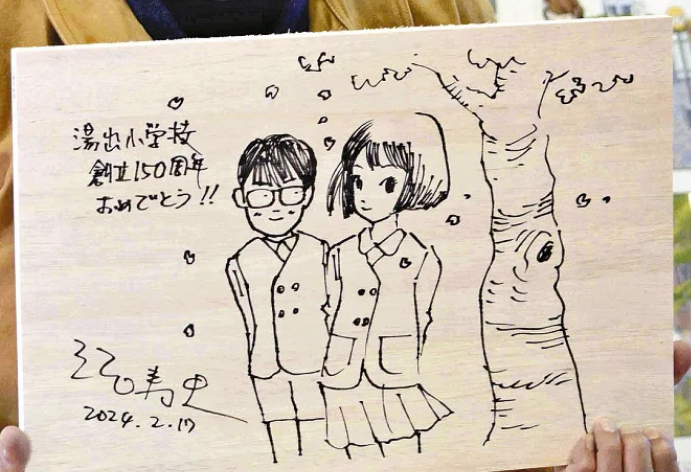 湯出小学校
創立150周年
おめでとう!!
江口寿史
2024.2.17